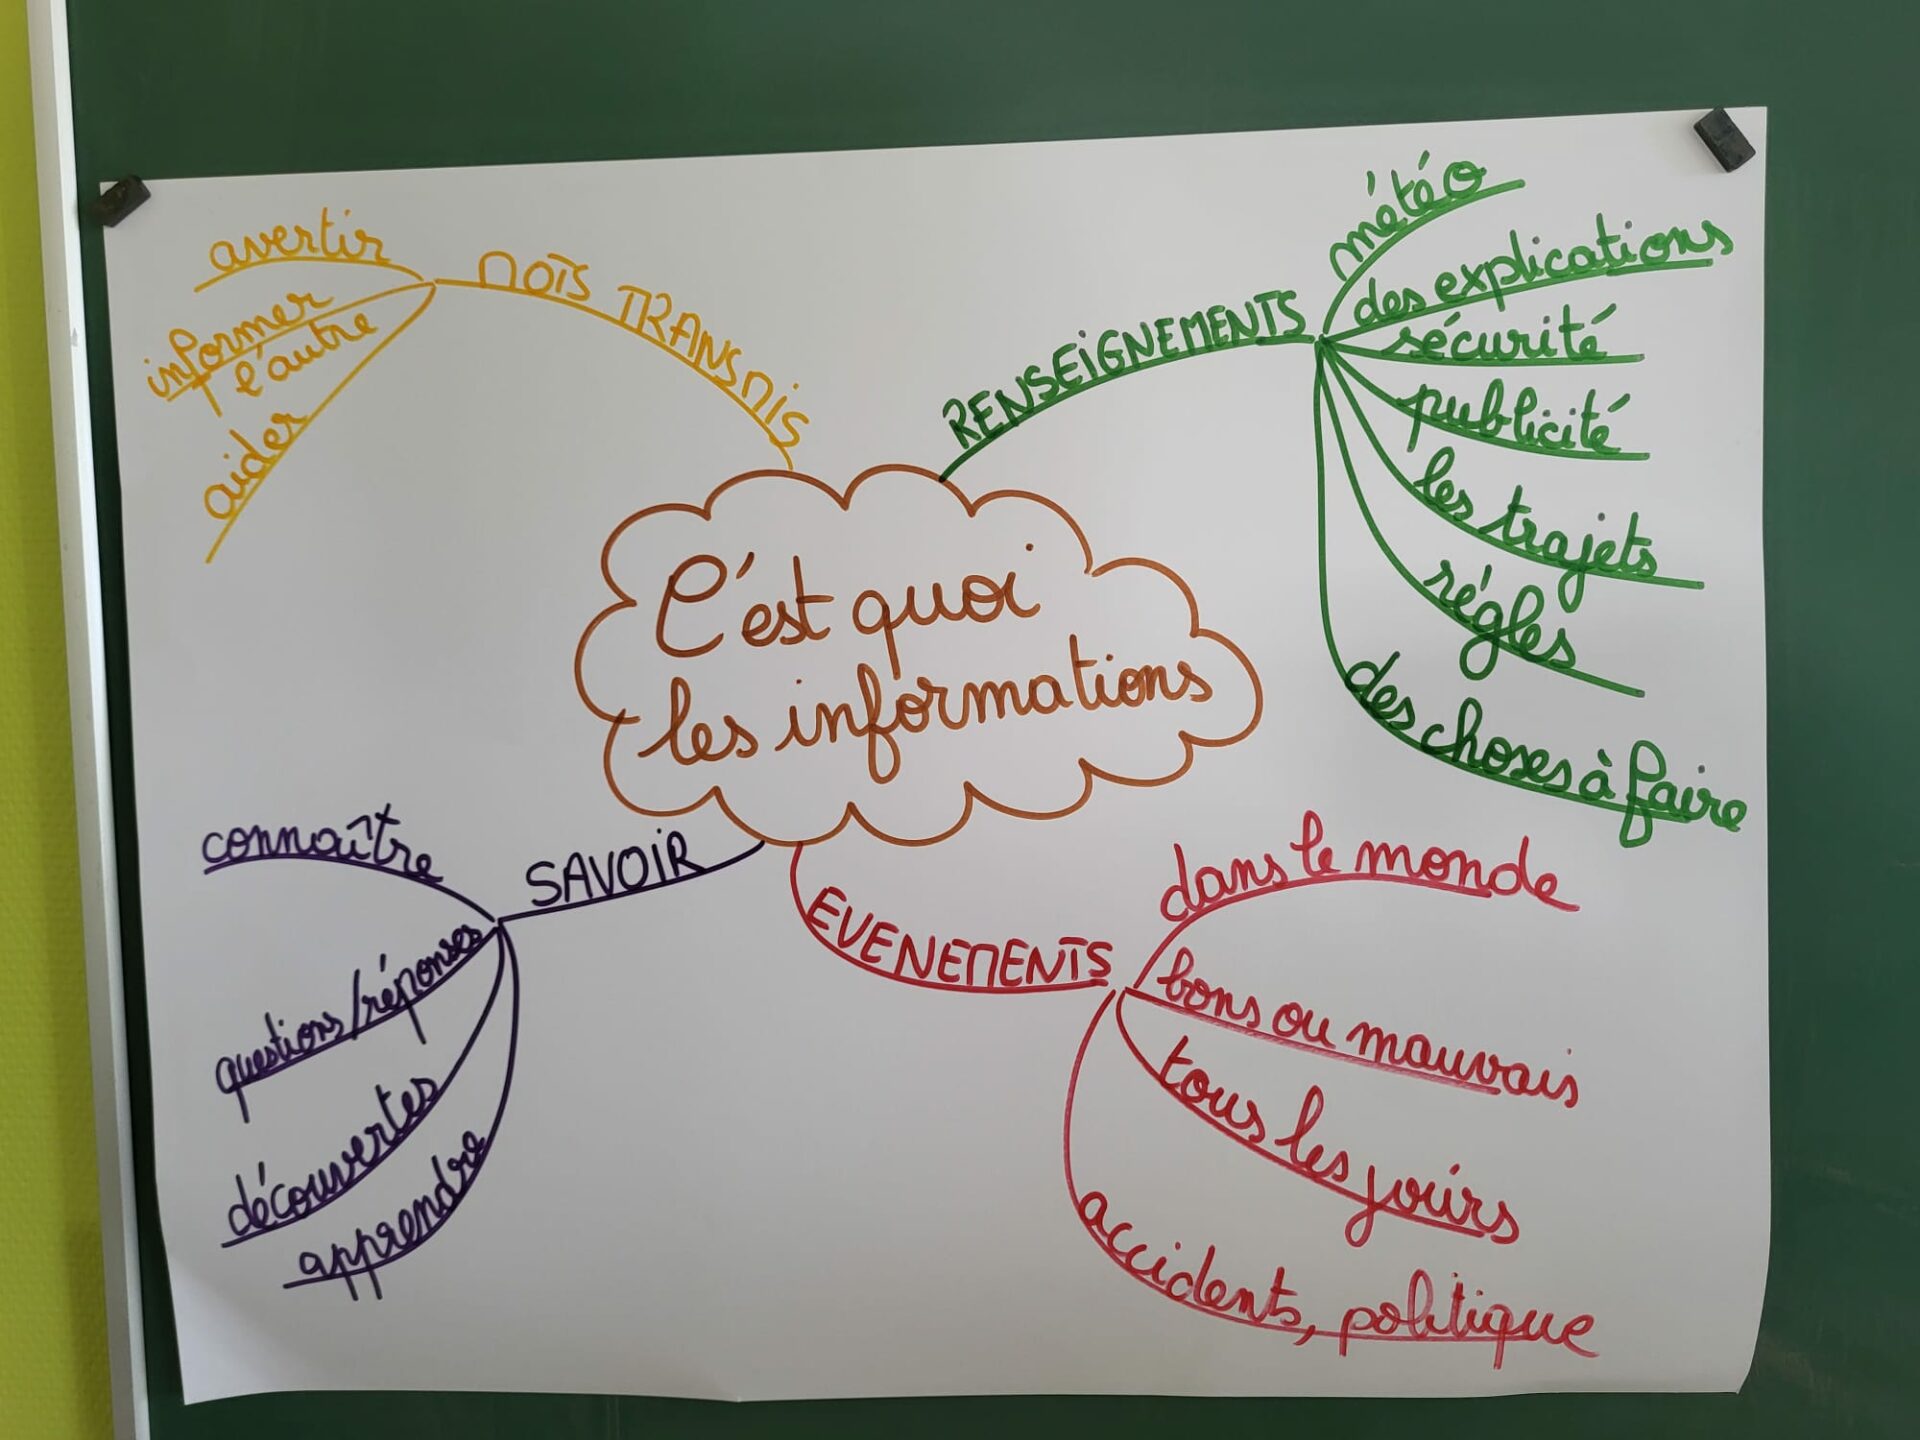 C'est quoi
les informations
MOTS TRANSMIS
avertir
informer
l'autre
aider
RENSEIGNEMENTS
météo
des explications
sécurité
publicité
les trajets
régles
des choses à faire
EVENEMENTS
dans le monde
bons ou mauvais
tous les jours
accidents, politique
SAVOIR
connaître
questions/réponses
découvertes
apprendre